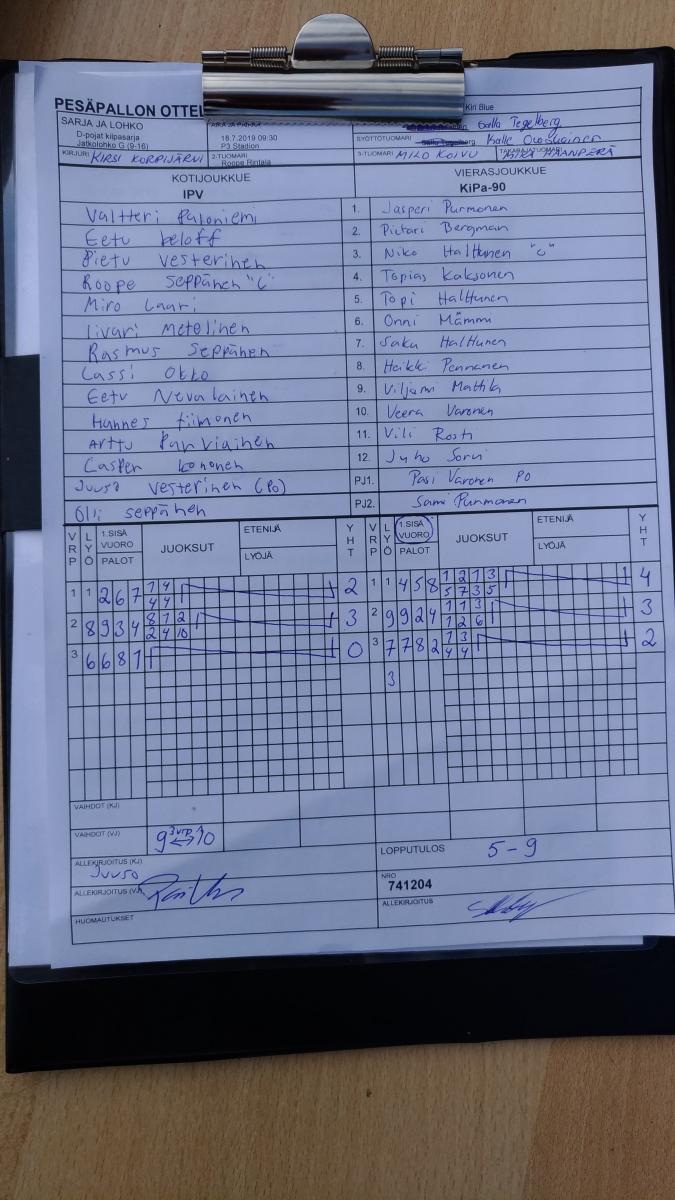 PESÄPALLON OTTEL
Kiri Blue
SARJA JA LOHKO
D-pojat kilpasarja
Jatkolohko G (9-16)
AIKA JA PAIKKA
18.7.2019 09:30
P3 Stadion
Salla Tegelberg
SYÖTTÖTUOMARI Salla Tegelberg Kalle
KIRJURI KIRSI KORPIJÄRVI
2-TUOMARI
Roope Rintala
3-TUOMARI MILO KOIVU
TAKARAJATUOMARI MIKA HAANPERÄ
KOTIJOUKKUE
IPV
VIERASJOUKKUE
KiPa-90
Valtteri Paloniemi 1. Jasperi Purmonen
Eetu beloff 2. Pietari Bergman
Pietu Vesterinen 3. Niko Halttunen "C"
Roope Seppänen "C" 4. Topias Kaksonen
Miro Laari 5. Topi Halttunen
Iivari Metelinen 6. Onni Mämmi
Rasmus Seppänen 7. Saku Halttunen
Lassi Okko 8. Heikki Pennanen
Eetu Nevalainen 9. Viljami Mattila
Hannes Tiimonen 10. Veera Varonen
Arttu Parviainen 11. Vili Rosti
Casper Kononen 12. Juho Sorvi
Juuso Vesterinen (PO) PJ1. Pasi Varonen PO
Olli Seppänen PJ2. Sami Purmonen
VRP LYÖ 1.SISÄ VUORO PALOT JUOKSUT ETENIJÄ LYÖJÄ YHT VRP LYÖ 1.SISÄ VUORO PALOT JUOKSUT ETENIJÄ LYÖJÄ YHT
1 1 2 6 7 1 4 2 1 1 4 5 8 1 2 1 3 4
4 4 5 7 3 5
2 8 9 3 4 8 1 2 3 2 9 9 2 4 1 1 3 3
2 4 10 1 2 6
3 6 6 8 1 0 3 7 7 8 2 1 3 2
4 4
3
VAIHDOT (KJ)
VAIHDOT (VJ) 9 3vrp 10
ALLEKIRJOITUS (KJ)
Juuso
ALLEKIRJOITUS (VJ)
HUOMAUTUKSET
LOPPUTULOS 5-9
NRO
741204
ALLEKIRJOITUS